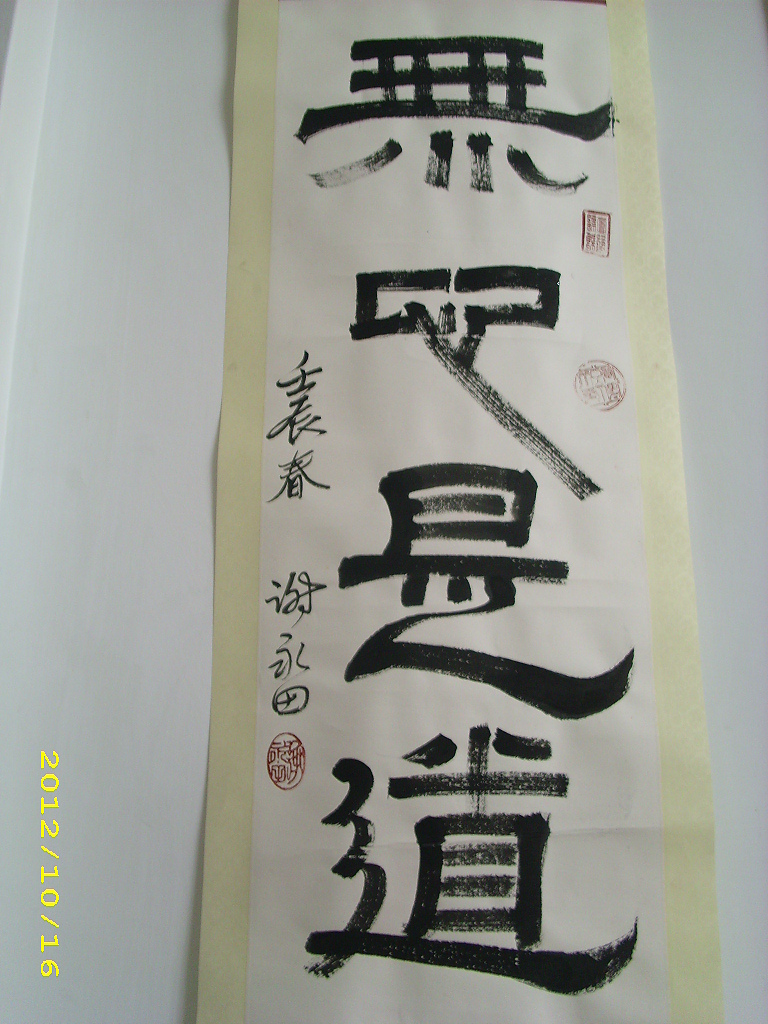 無心是道
壬辰春 谢永田
2012/10/16